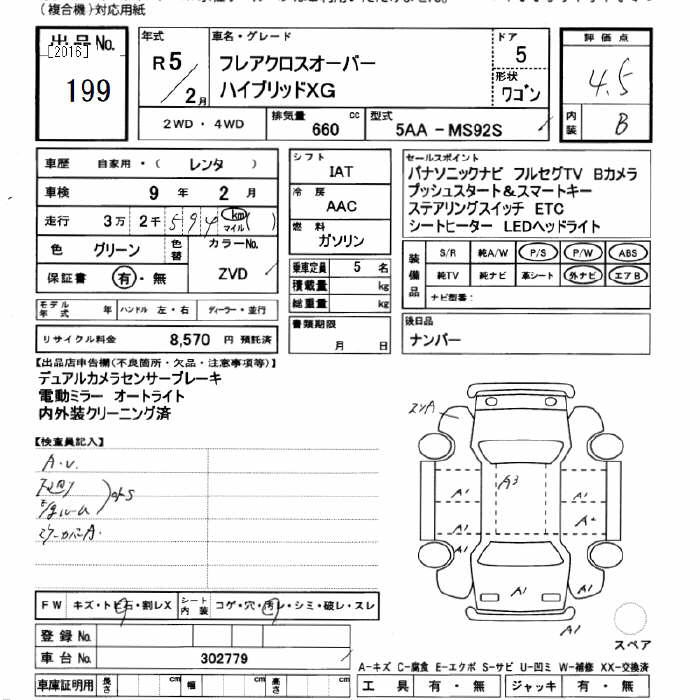 (複合機)対応用紙
出品No. 年式 車名・グレード ドア 評価点
[2016] R5 フレアクロスオーバー 5 4.5
199 2月 ハイブリッドXG 形状 ワゴン
内装 B
2WD・4WD 排気量 660 cc 型式 5AA -MS92S
車歴 自家用・( レンタ )
車検 9 年 2 月
走行 3万 2千 594 km マイル( )
色 グリーン 色替 カラーNo.
保証書 有・無 ZVD
モデル年式 年 ハンドル 左・右 ディーラー・並行
リサイクル料金 8,570 円 預託済
シフト IAT
冷房 AAC
燃料 ガソリン
乗車定員 5 名
積載量 kg
総重量 kg
書類期限
月 日
セールスポイント
パナソニックナビ フルセグTV Bカメラ
プッシュスタート&スマートキー
ステアリングスイッチ ETC
シートヒーター LEDヘッドライト
装備品 S/R 純A/W P/S P/W ABS
純TV 純ナビ 革シート 外ナビ エアB
ナビ型番:
後日品
ナンバー
【出品店申告欄(不良箇所・欠品・注意事項等)】
デュアルカメラセンサーブレーキ
電動ミラー オートライト
内外装クリーニング済
【検査員記入】
A・U.
ミラーカバーA.
A3
A1 A1
A1 A2
A1 A1
A1 A1
A1
スペア
FW キズ・トビ石・割レX シート内装 コゲ・穴・汚レ・シミ・破レ・スレ
登録No.
車台No. 302779
A-キズ C-腐食 E-エクボ S-サビ U-凹ミ W-補修 XX-交換済
車庫証明用 長さ cm 幅 cm 高さ cm 工具 有・無 ジャッキ 有・無